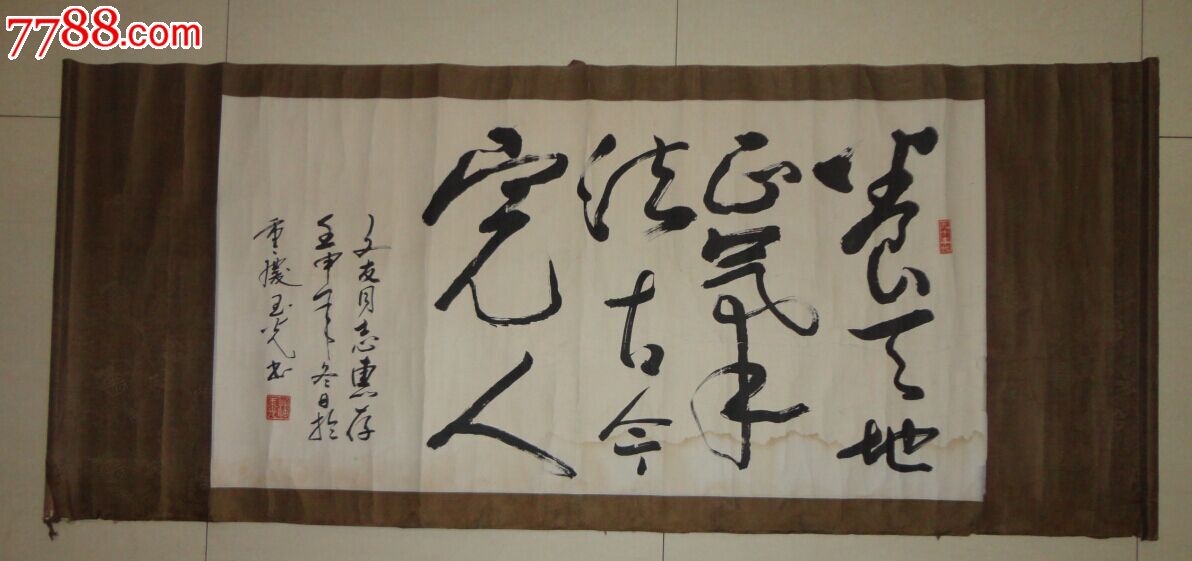 7788.com
养天地
正氣
法古今
完人
文友同志惠存
壬申年冬日於
重慶玉光书